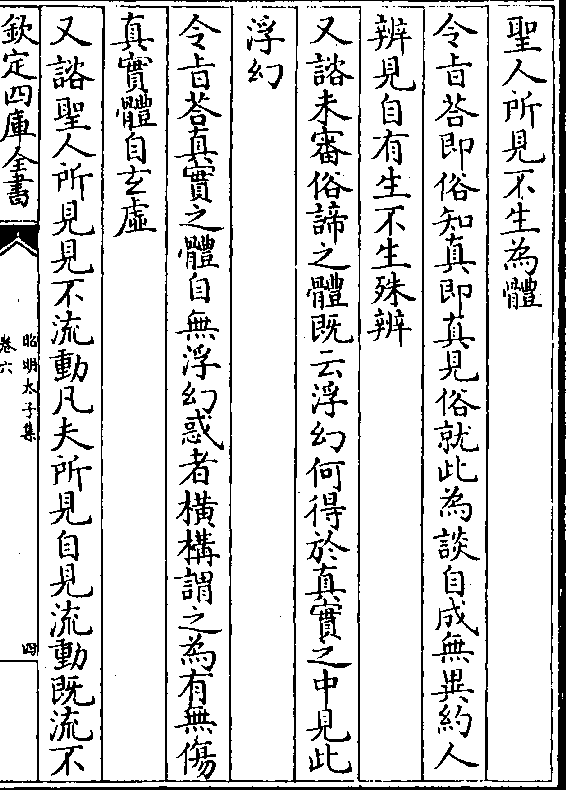 聖人所見不生為體
令旨荅即俗知真即真見俗就此為談自成無異約人
辨見自有生不生殊辨
又諮未審俗諦之體既云浮幻何得於真實之中見此
浮幻
令旨荅真實之體自無浮幻惑者橫構謂之為有無傷
真實體自玄虛
又諮聖人所見見不流動凡夫所見自見流動既流不
欽定四庫全書
昭明太子集
卷六
四